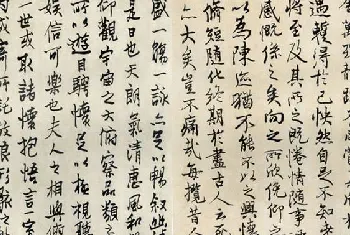 萬殊靜躁不同當其
遇暫得於己快然自足不知老
將至及其所之既惓情隨事
感慨係之矣向之所欣俛仰之
以為陳迹猶不能不以之興懷
脩短隨化終期於盡古人云死
亦大矣豈不痛哉每攬昔人
盛一觴一詠亦足以暢敘幽
是日也天朗氣清惠風和
仰觀宇宙之大俯察品類之
所以遊目騁懷足以極視聽
娛信可樂也夫人之相與俯
一世或取諸懷抱悟言一室
或寄所託放浪形骸之外